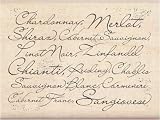 Chardonnay, Merlot,
Shiraz, Cabernet Sauvignon
Pinot Noir, Zinfandel
Chianti, Riesling, Chablis
Sauvignon Blanc, Carmenere
Cabernet Franc, Sangiovese